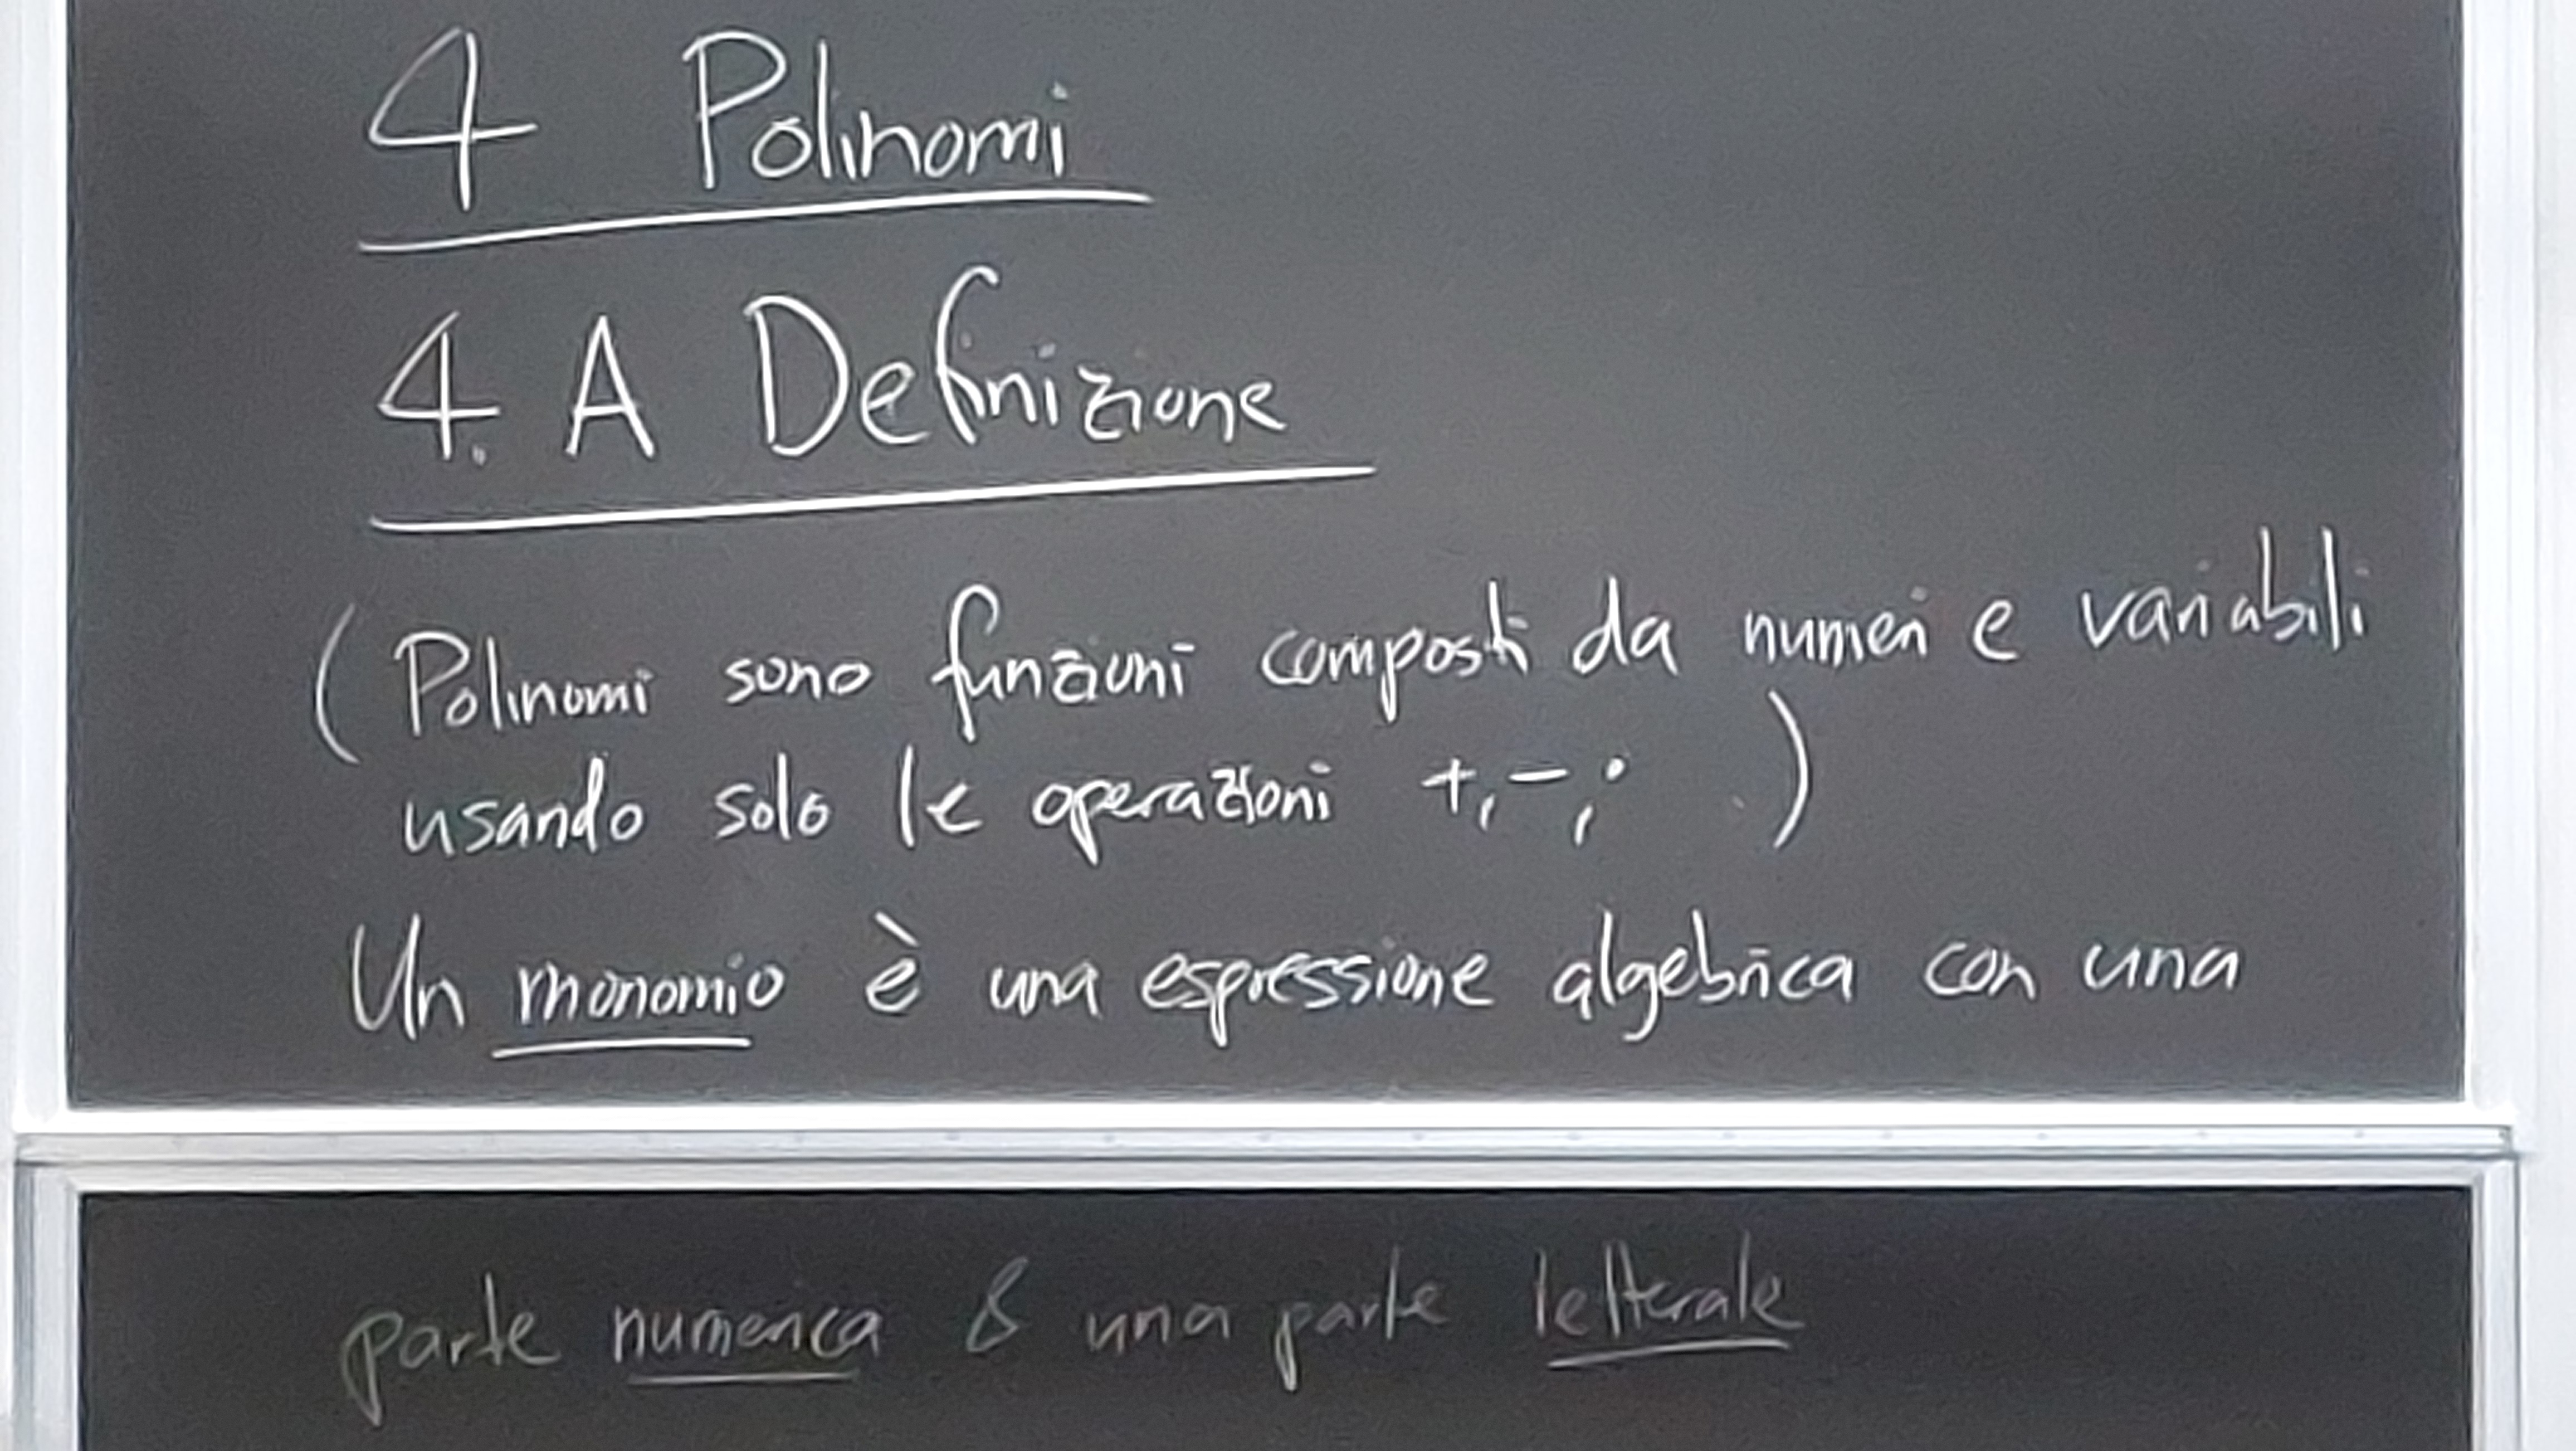 4 Polinomi
4. A Definizione
(Polinomi sono funzioni composti da numeri e variabili
usando solo le operazioni +, -, · )
Un monomio è una espressione algebrica con una
parte numerica & una parte letterale